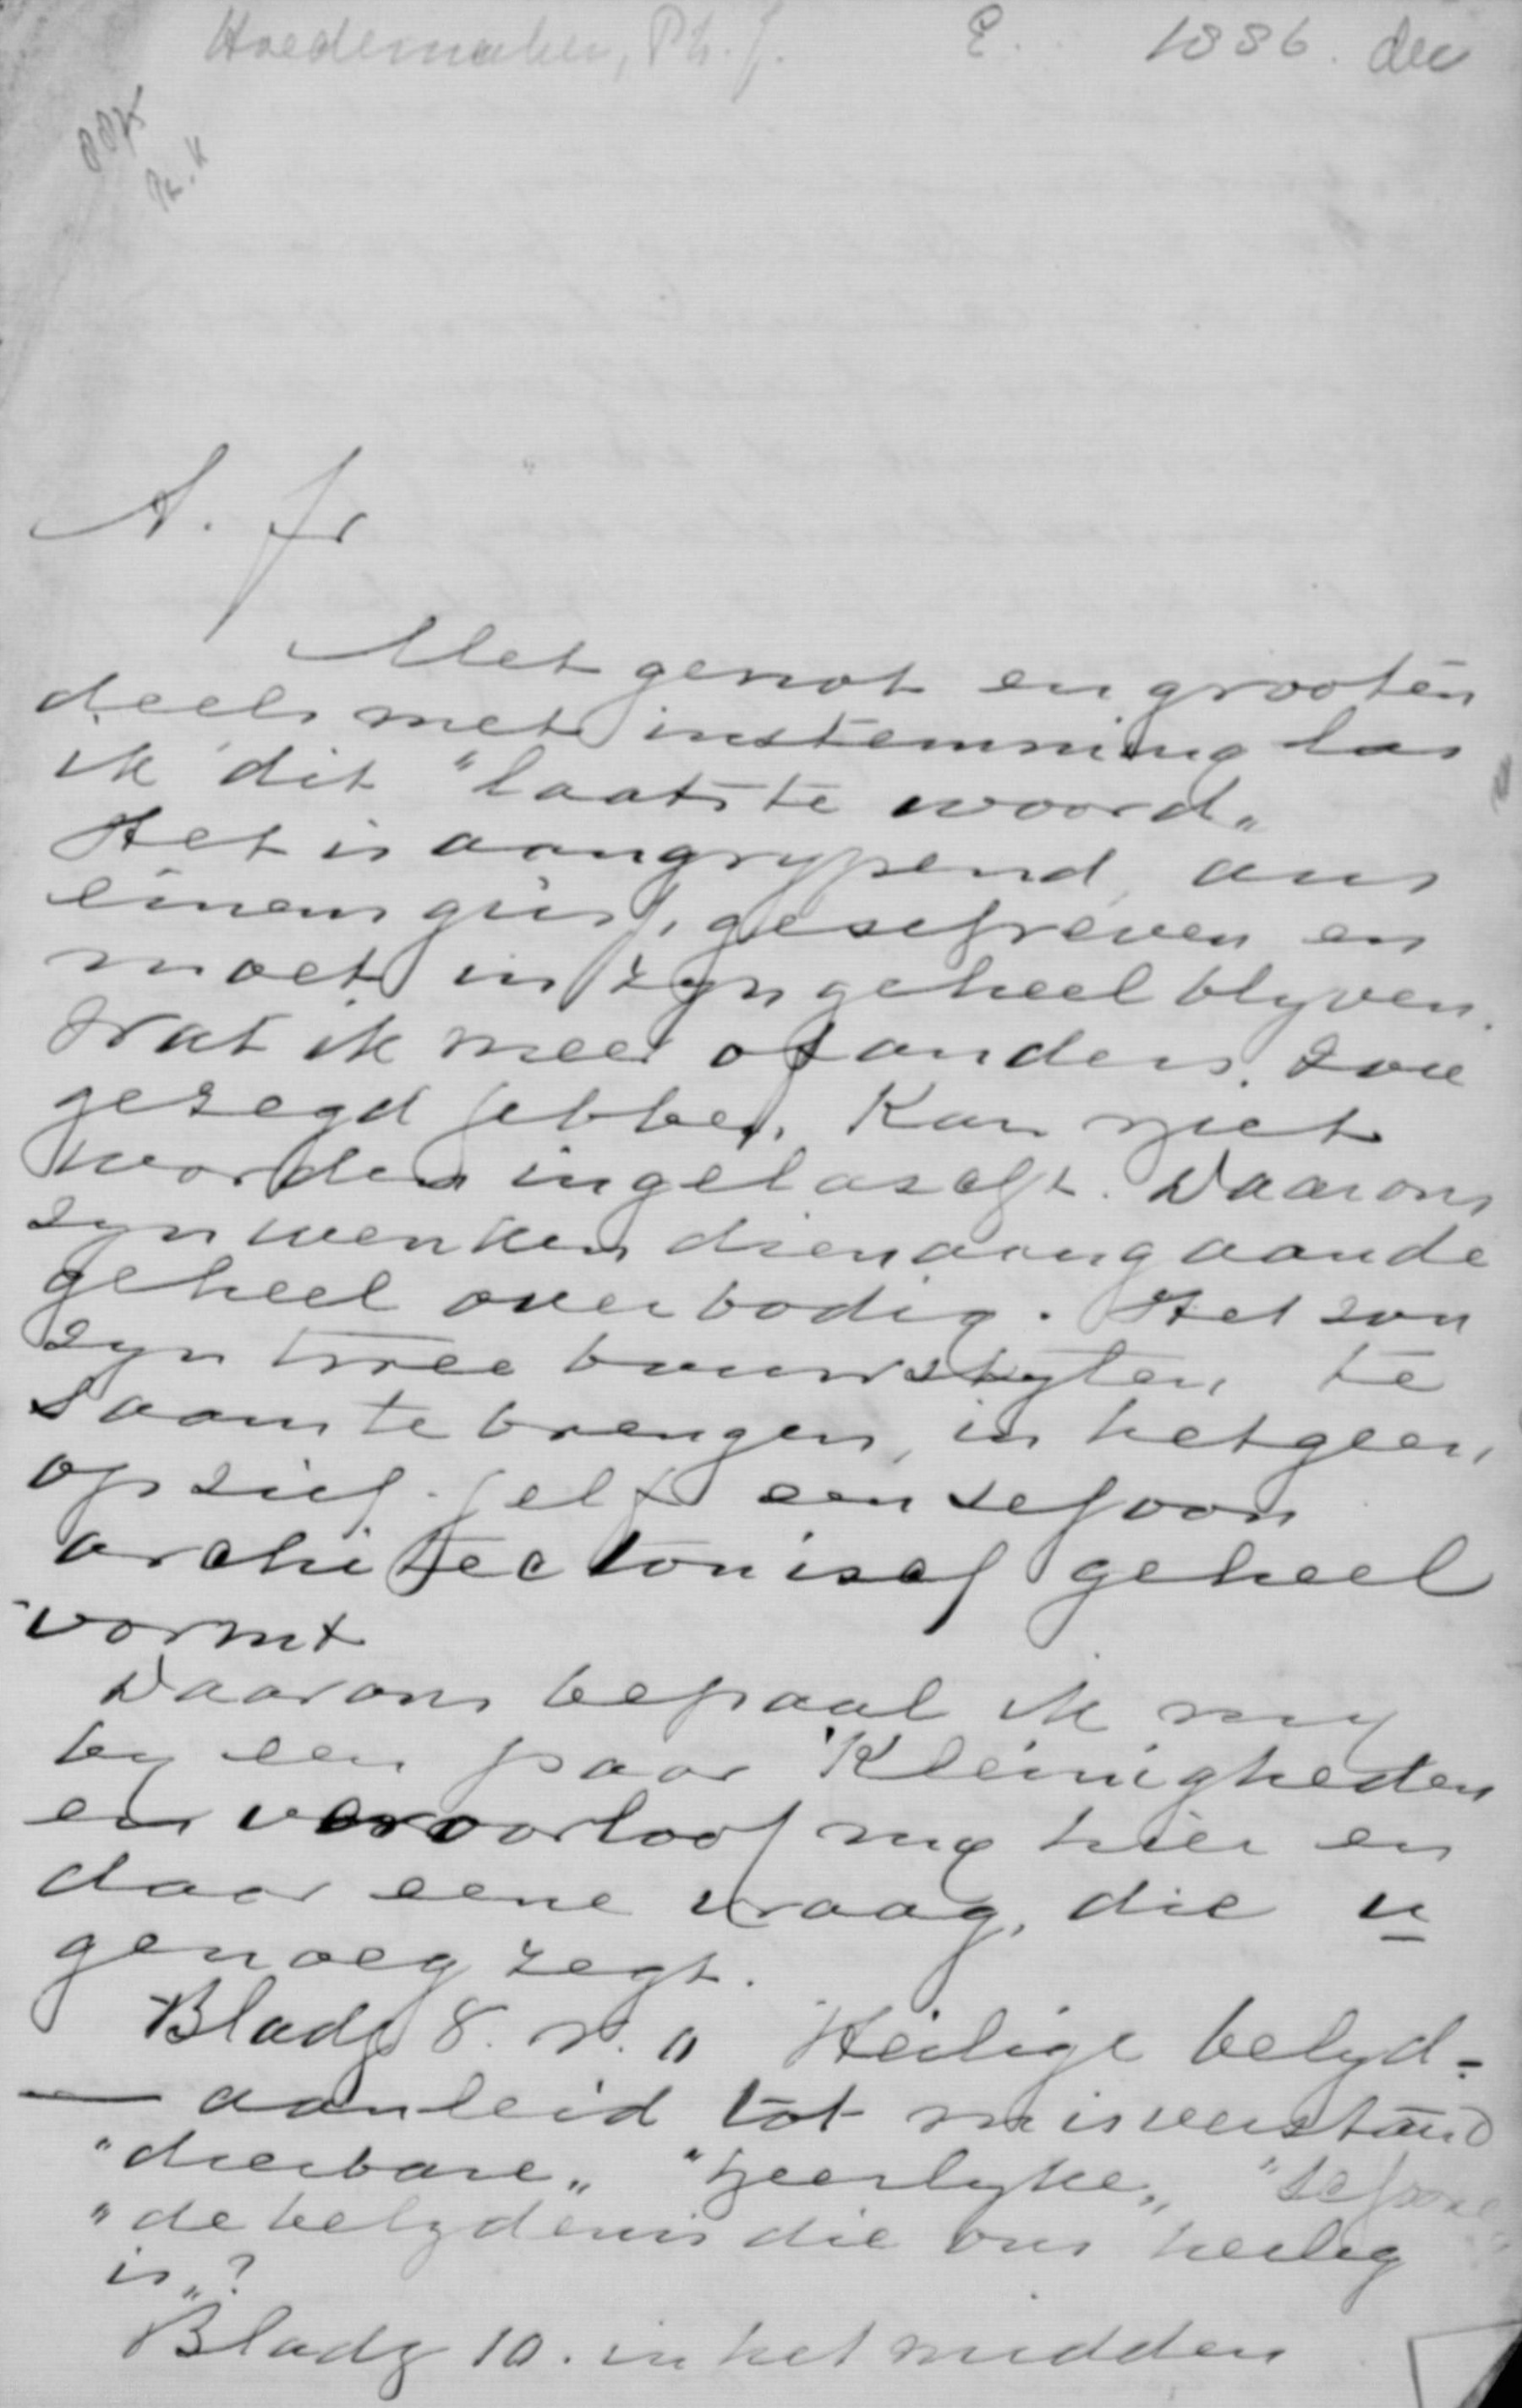 Hoedemaker, Ph. J. 1886. dec
A. fr
Met genot en grooten
deels met instemming las
ik dit "laatste woord„
Het is aangrypend, aus
einem guss, geschreven en
moet in zyn geheel blyven.
Wat ik meer of anders zou
gezegd hebben, kan niet
worden ingelascht. Daarom
zyn wenken dienaangaande
geheel overbodig. Het zou
zyn twee bouwstylen te
saam te brengen, in hetgeen
op zich zelf een schoon
architectonisch geheel
vormt
Daarom bepaal ik my
by een paar kleinigheden
en veroorloof my hier en
daar eene vraag, die u
genoeg zegt.
Bladz 8. Heilige belyd-
— aanleid tot misverstand
"dierbare„ "heerlyke„ "schoone
"de belydenis die ons heilig
is„?
Bladz 10. in het midden